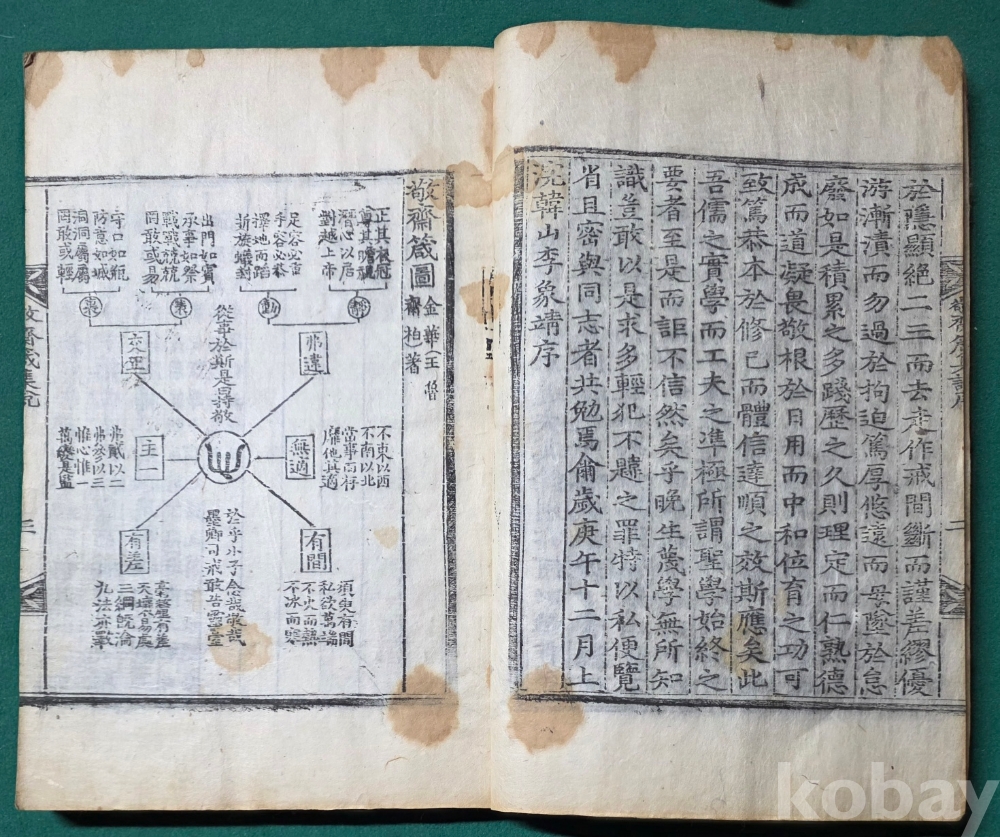 於隱顯絶二三而去走作戒間斷而謹差繆優
游漸漬而勿過於拘迫篤厚悠遠而毋墮於怠
廢如是積累之多踐歷之久則理定而仁熟德
成而道凝畏敬根於日用而中和位育之功可
致篤恭本於修己而體信達順之效斯應矣此
吾儒之實學而工夫之準極所謂聖學始終之
要者至是而詎不信然矣乎晩生蔑學無所知
識豈敢以是求多輕犯不韙之罪特以私便覽
省且密與同志者共勉焉爾歲庚午十二月上
浣韓山李象靖序
敬齋箴圖
金華王魯
齋柏著
正其衣冠
尊其瞻視
潛心以居
對越上帝
足容必重
手容必恭
擇地而蹈
折旋蟻封
出門如賓
承事如祭
戰戰兢兢
罔敢或易
守口如瓶
防意如城
洞洞屬屬
罔敢或輕
靜
動
表
裏
弗違
從事於斯是曰持敬
交正
不東以西
不南以北
當事而存
靡他其適
無適
心
主一
弗貳以二
弗參以三
惟心惟
萬變是監
有間
於乎小子念哉敬哉
墨卿司戒敢告靈臺
有差
須臾有間
私欲萬端
不火而熱
不冰而寒
毫釐有差
天壤易處
三綱旣淪
九法亦斁
敬齋箴集說
二
kobay